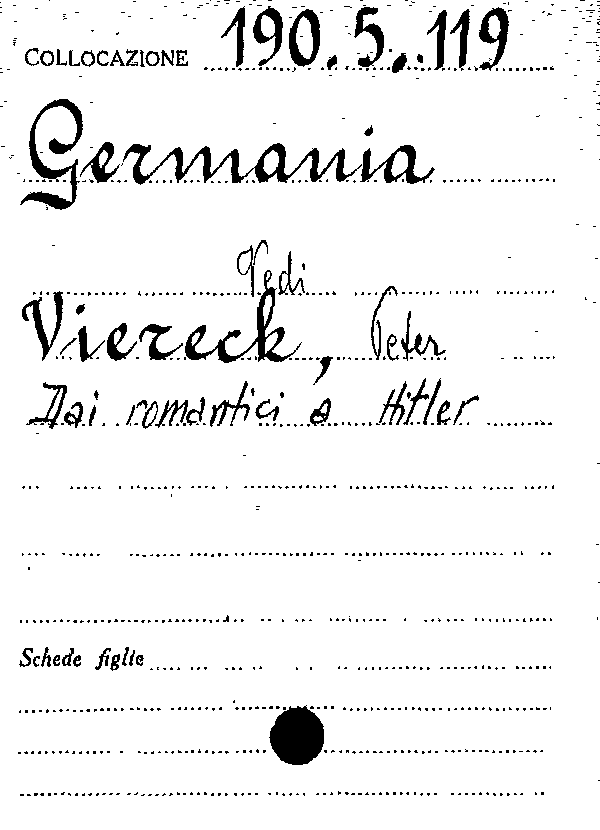 COLLOCAZIONE 190.5.119
Germania
Vedi
Viereck, Peter
Dai romantici a Hitler
Schede figlie